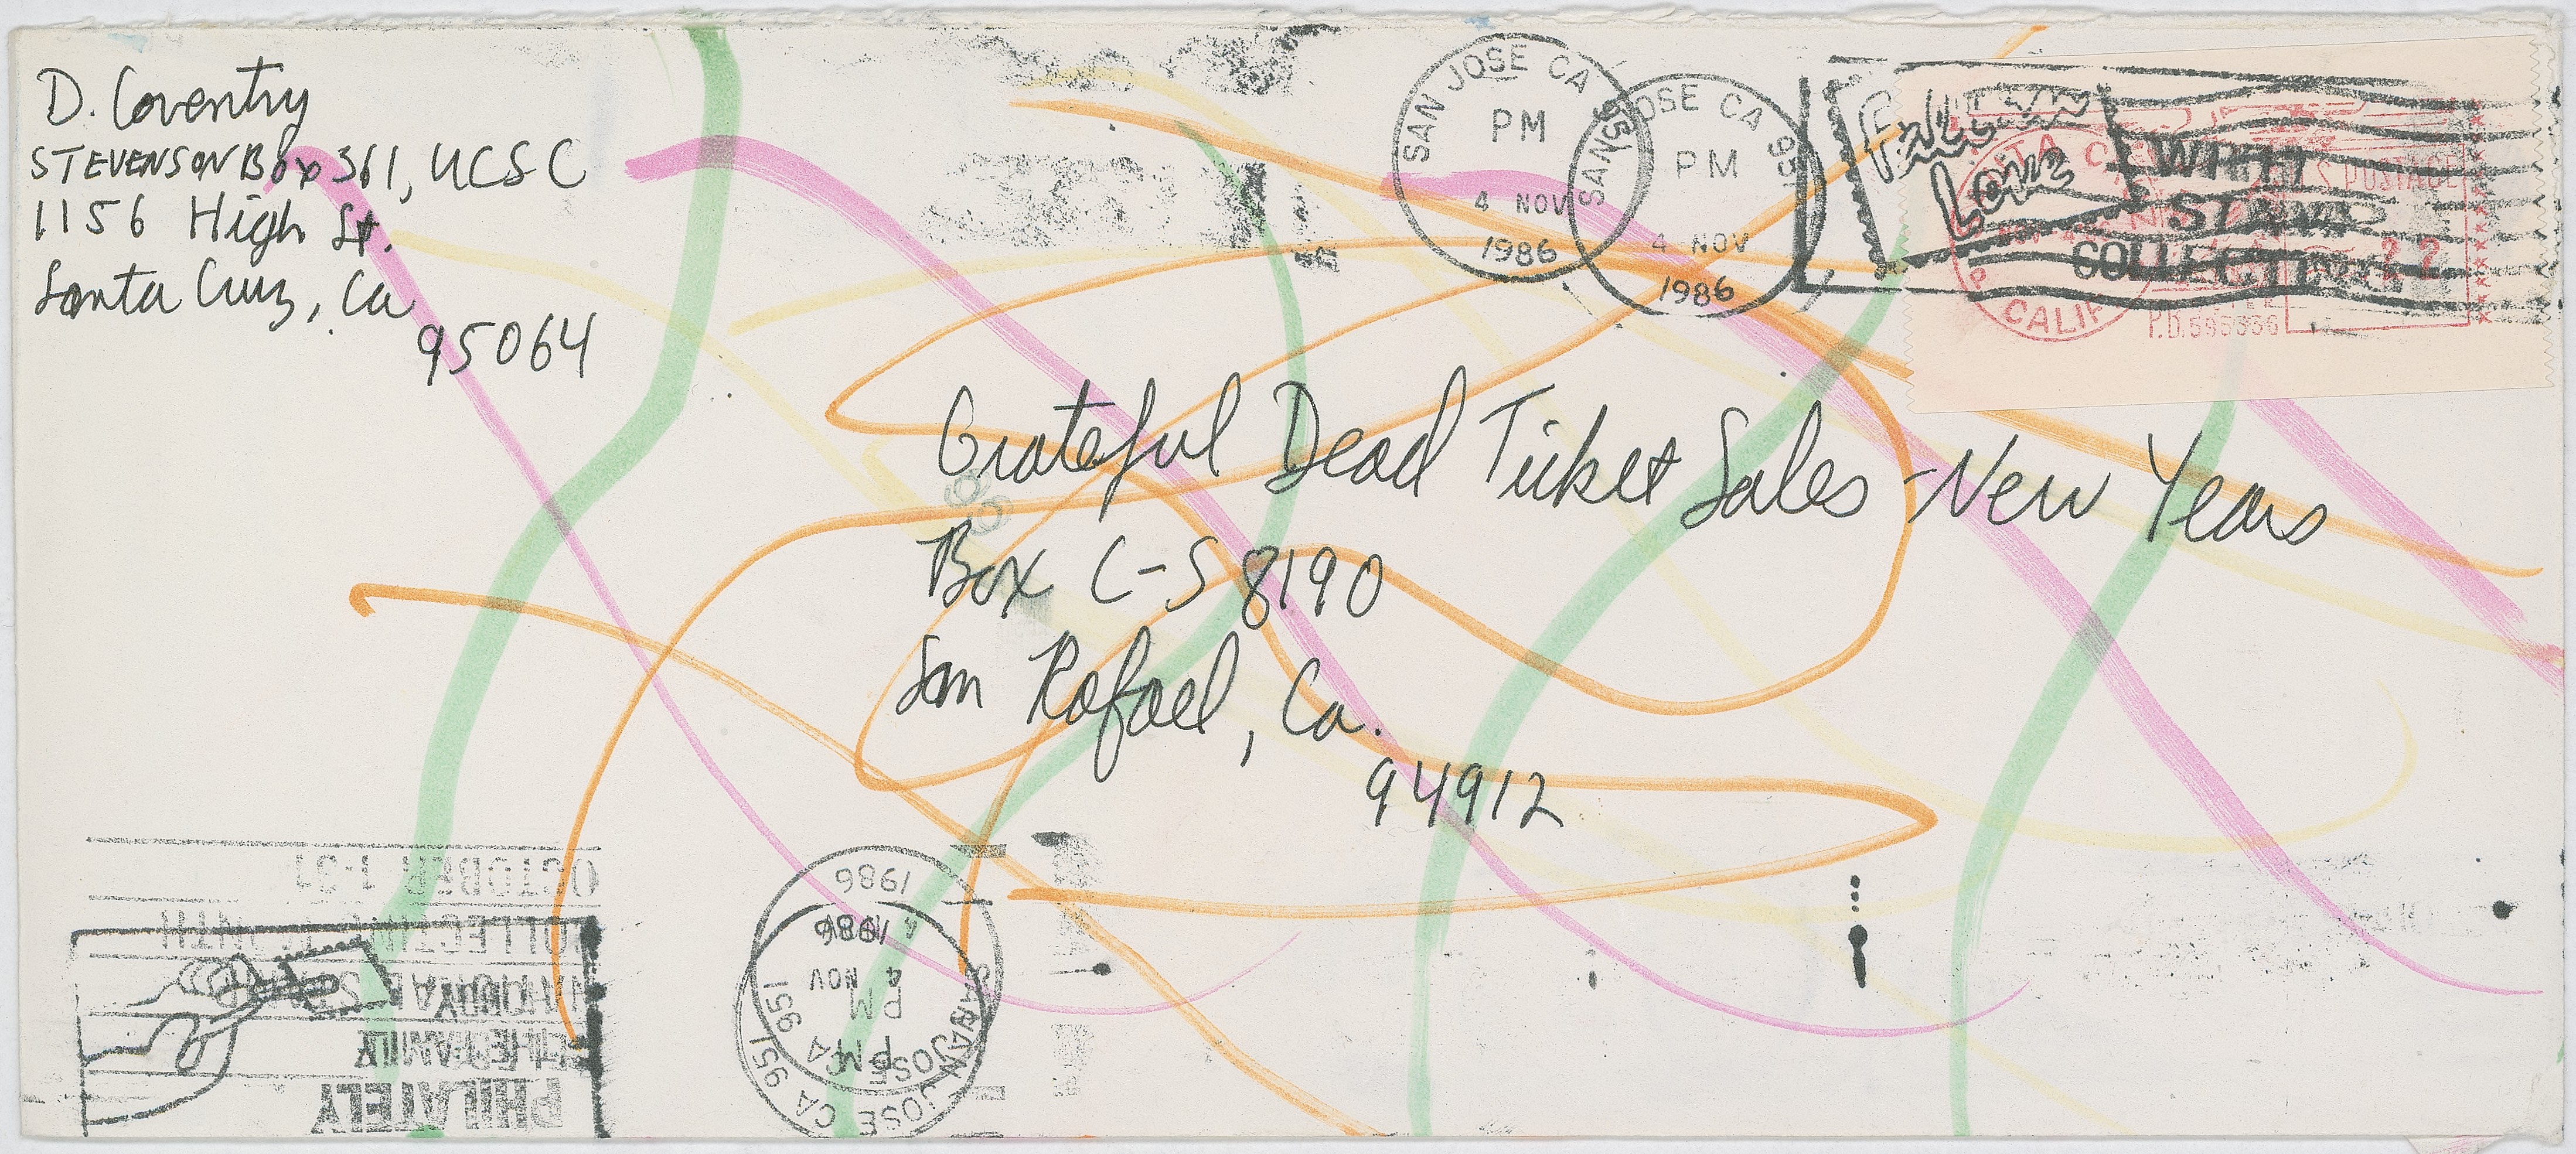 D. Coventry
STEVENSON Box 361, UCSC
1156 High St.
Santa Cruz, Ca
95064
SAN JOSE CA 951
PM
4 NOV
1986
SAN JOSE CA 951
PM
4 NOV
1986
Fall in
Love
WITH
STAMP
COLLECTING
U.S. POSTAGE
22
CALIF
P.D.595336
Grateful Dead Ticket Sales - New Years
Box C-S 8190
San Rafael, Ca.
94912
PHILATELY
THE FAMILY
COLLECTING MONTH
OCTOBER 1-31
SAN JOSE CA 951
PM
4 NOV
1986
SAN JOSE CA 951
PM
4
1986